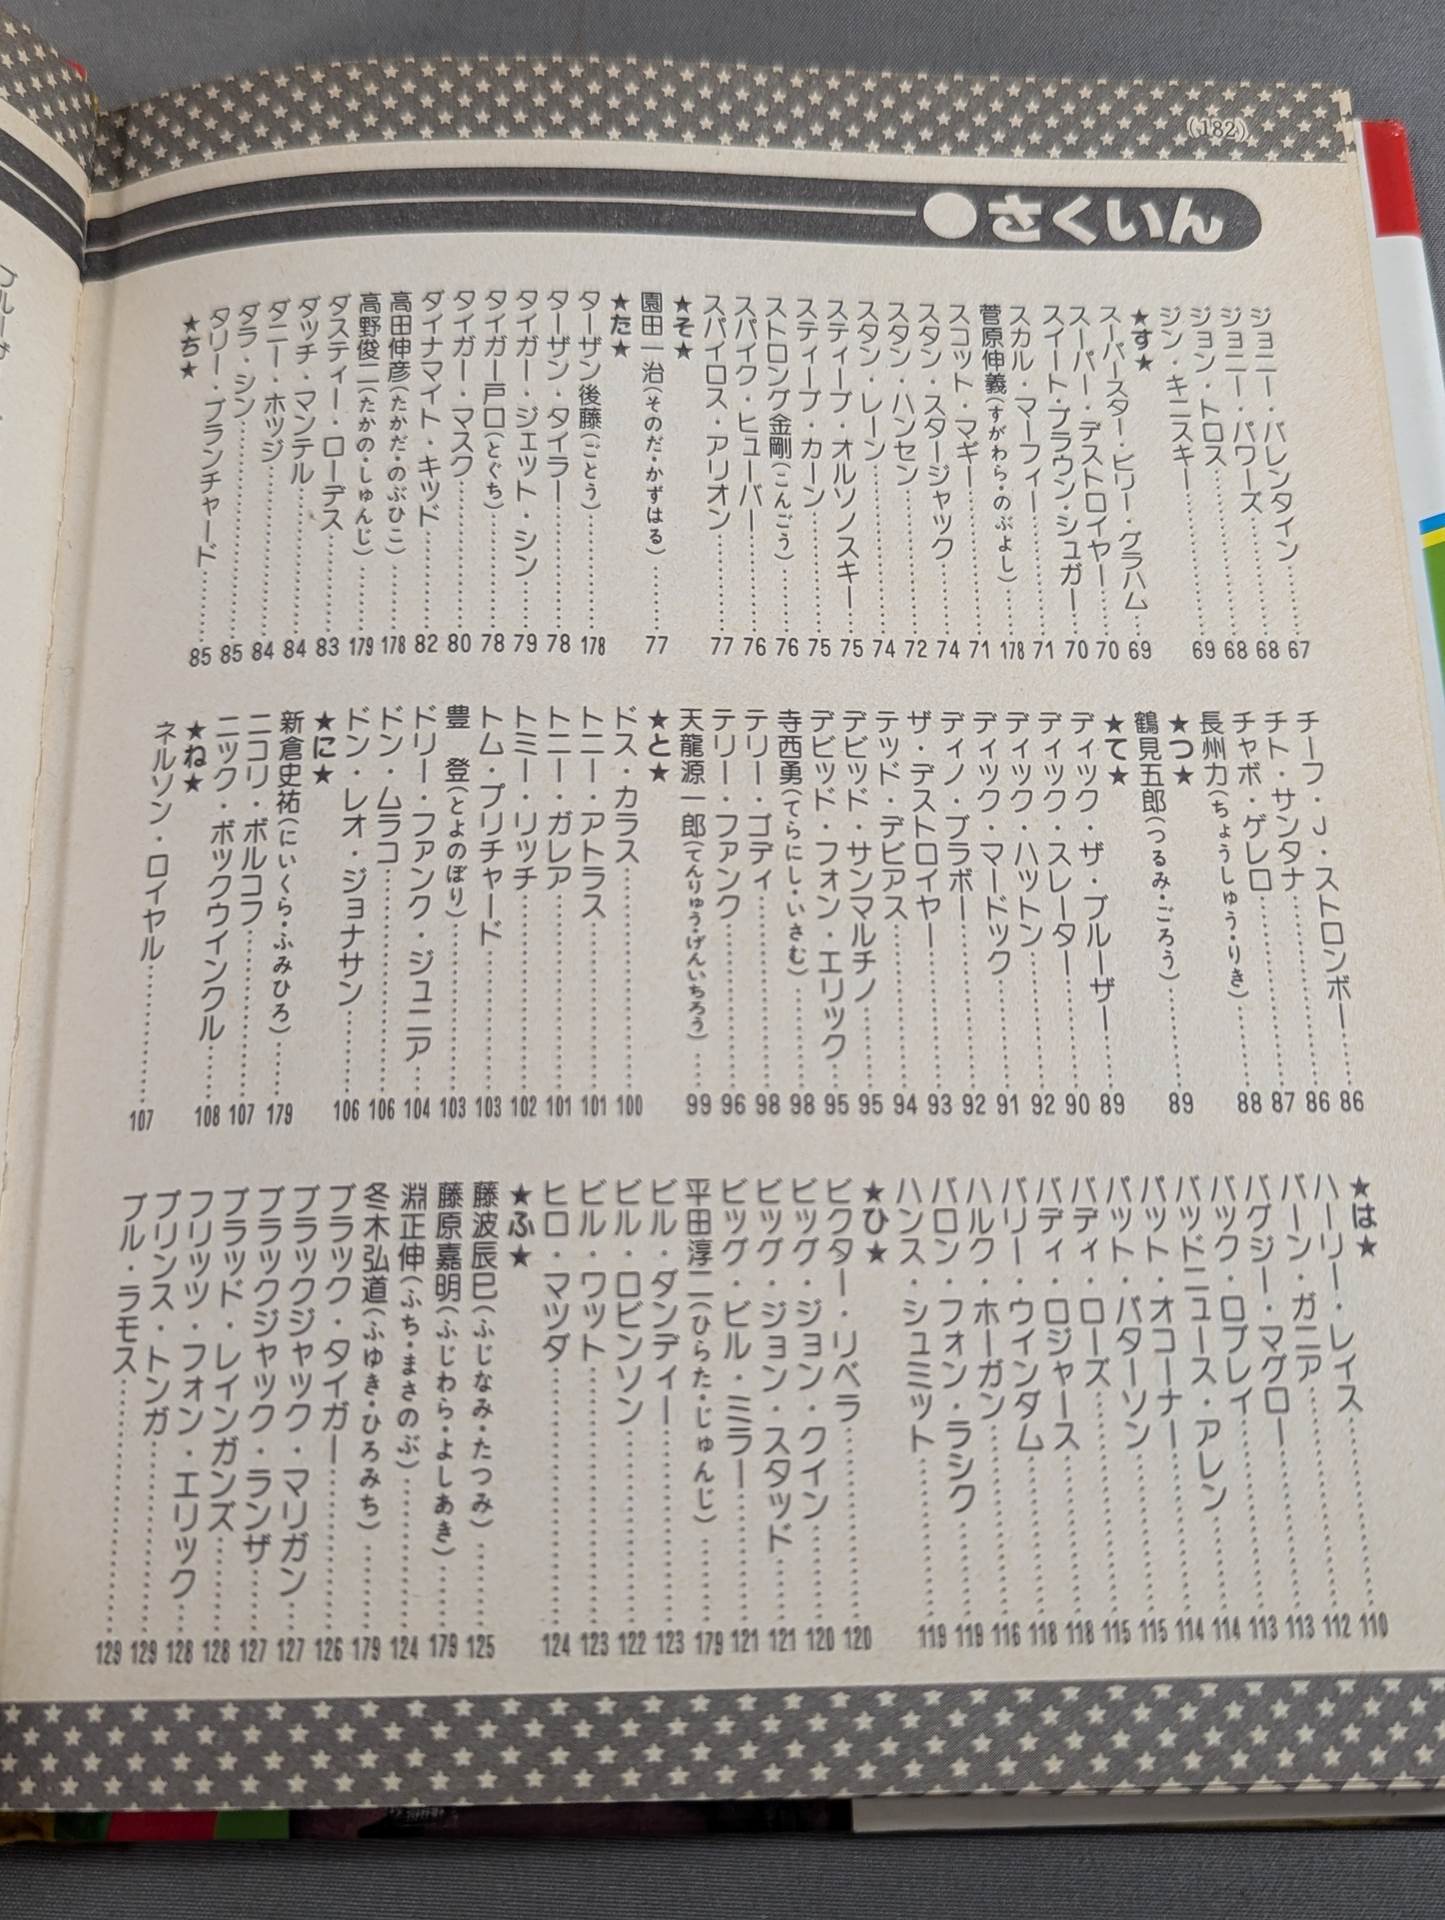 (182)
さくいん
ジョニー・バレンタイン……67
ジョニー・パワーズ……68
ジョン・トロス……68
ジン・キニスキー……69
★す★
スーパースター・ビリー・グラハム…69
スーパー・デストロイヤー……70
スイート・ブラウン・シュガー…70
スカル・マーフィー……71
菅原伸義(すがわら・のぶよし)…178
スコット・マギー……71
スタン・スタージャック……74
スタン・ハンセン……72
スタン・レーン……74
スティーブ・オルソノスキー…75
スティーブ・カーン……75
ストロング金剛(こんごう)……76
スパイク・ヒューバー……76
スパイロス・アリオン……77
★そ★
園田一治(そのだ・かずはる)……77
★た★
ターザン後藤(ごとう)……178
ターザン・タイラー……78
タイガー・ジェット・シン……79
タイガー戸口(とぐち)……78
タイガー・マスク……80
ダイナマイト・キッド……82
高田伸彦(たかだ・のぶひこ)……178
高野俊二(たかの・しゅんじ)……179
ダスティー・ローデス……83
ダッチ・マンテル……84
ダニー・ホッジ……84
ダラ・シン……85
タリー・ブランチャード……85
★ち★
チーフ・J・ストロンボー……86
チト・サンタナ……86
チャボ・ゲレロ……87
長州力(ちょうしゅう・りき)……88
★つ★
鶴見五郎(つるみ・ごろう)……89
★て★
ディック・ザ・ブルーザー……89
ディック・スレーター……90
ディック・ハットン……92
ディック・マードック……91
ディノ・ブラボー……92
ザ・デストロイヤー……93
テッド・デビアス……94
デビッド・サンマルチノ……95
デビッド・フォン・エリック…95
寺西勇(てらにし・いさむ)……98
テリー・ゴディ……98
テリー・ファンク……96
天龍源一郎(てんりゅう・げんいちろう)…99
★と★
ドス・カラス……100
トニー・アトラス……101
トニー・ガレア……101
トミー・リッチ……102
トム・プリチャード……103
豊 登(とよのぼり)……103
ドリー・ファンク・ジュニア…104
ドン・ムラコ……106
ドン・レオ・ジョナサン……106
★に★
新倉史祐(にいくら・ふみひろ)…179
ニコリ・ボルコフ……107
ニック・ボックウインクル……108
★ね★
ネルソン・ロイヤル……107
★は★
ハーリー・レイス……110
バーン・ガニア……112
バグジー・マグロー……113
バック・ロブレイ……113
バッドニュース・アレン……114
パット・オコーナー……114
パット・パターソン……115
バディ・ローズ……115
バディ・ロジャース……118
バリー・ウインダム……118
ハルク・ホーガン……116
バロン・フォン・ラシク……119
ハンス・シュミット……119
★ひ★
ビクター・リベラ……120
ビッグ・ジョン・クイン……120
ビッグ・ジョン・スタッド……121
ビッグ・ビル・ミラー……121
平田淳二(ひらた・じゅんじ)……179
ビル・ダンディー……123
ビル・ロビンソン……122
ビル・ワット……123
ヒロ・マツダ……124
★ふ★
藤波辰巳(ふじなみ・たつみ)……125
藤原嘉明(ふじわら・よしあき)…179
淵正伸(ふち・まさのぶ)……124
冬木弘道(ふゆき・ひろみち)……179
ブラック・タイガー……126
ブラックジャック・マリガン…127
ブラックジャック・ランザ……127
ブラッド・レインガンズ……128
フリッツ・フォン・エリック…128
プリンス・トンガ……129
ブル・ラモス……129